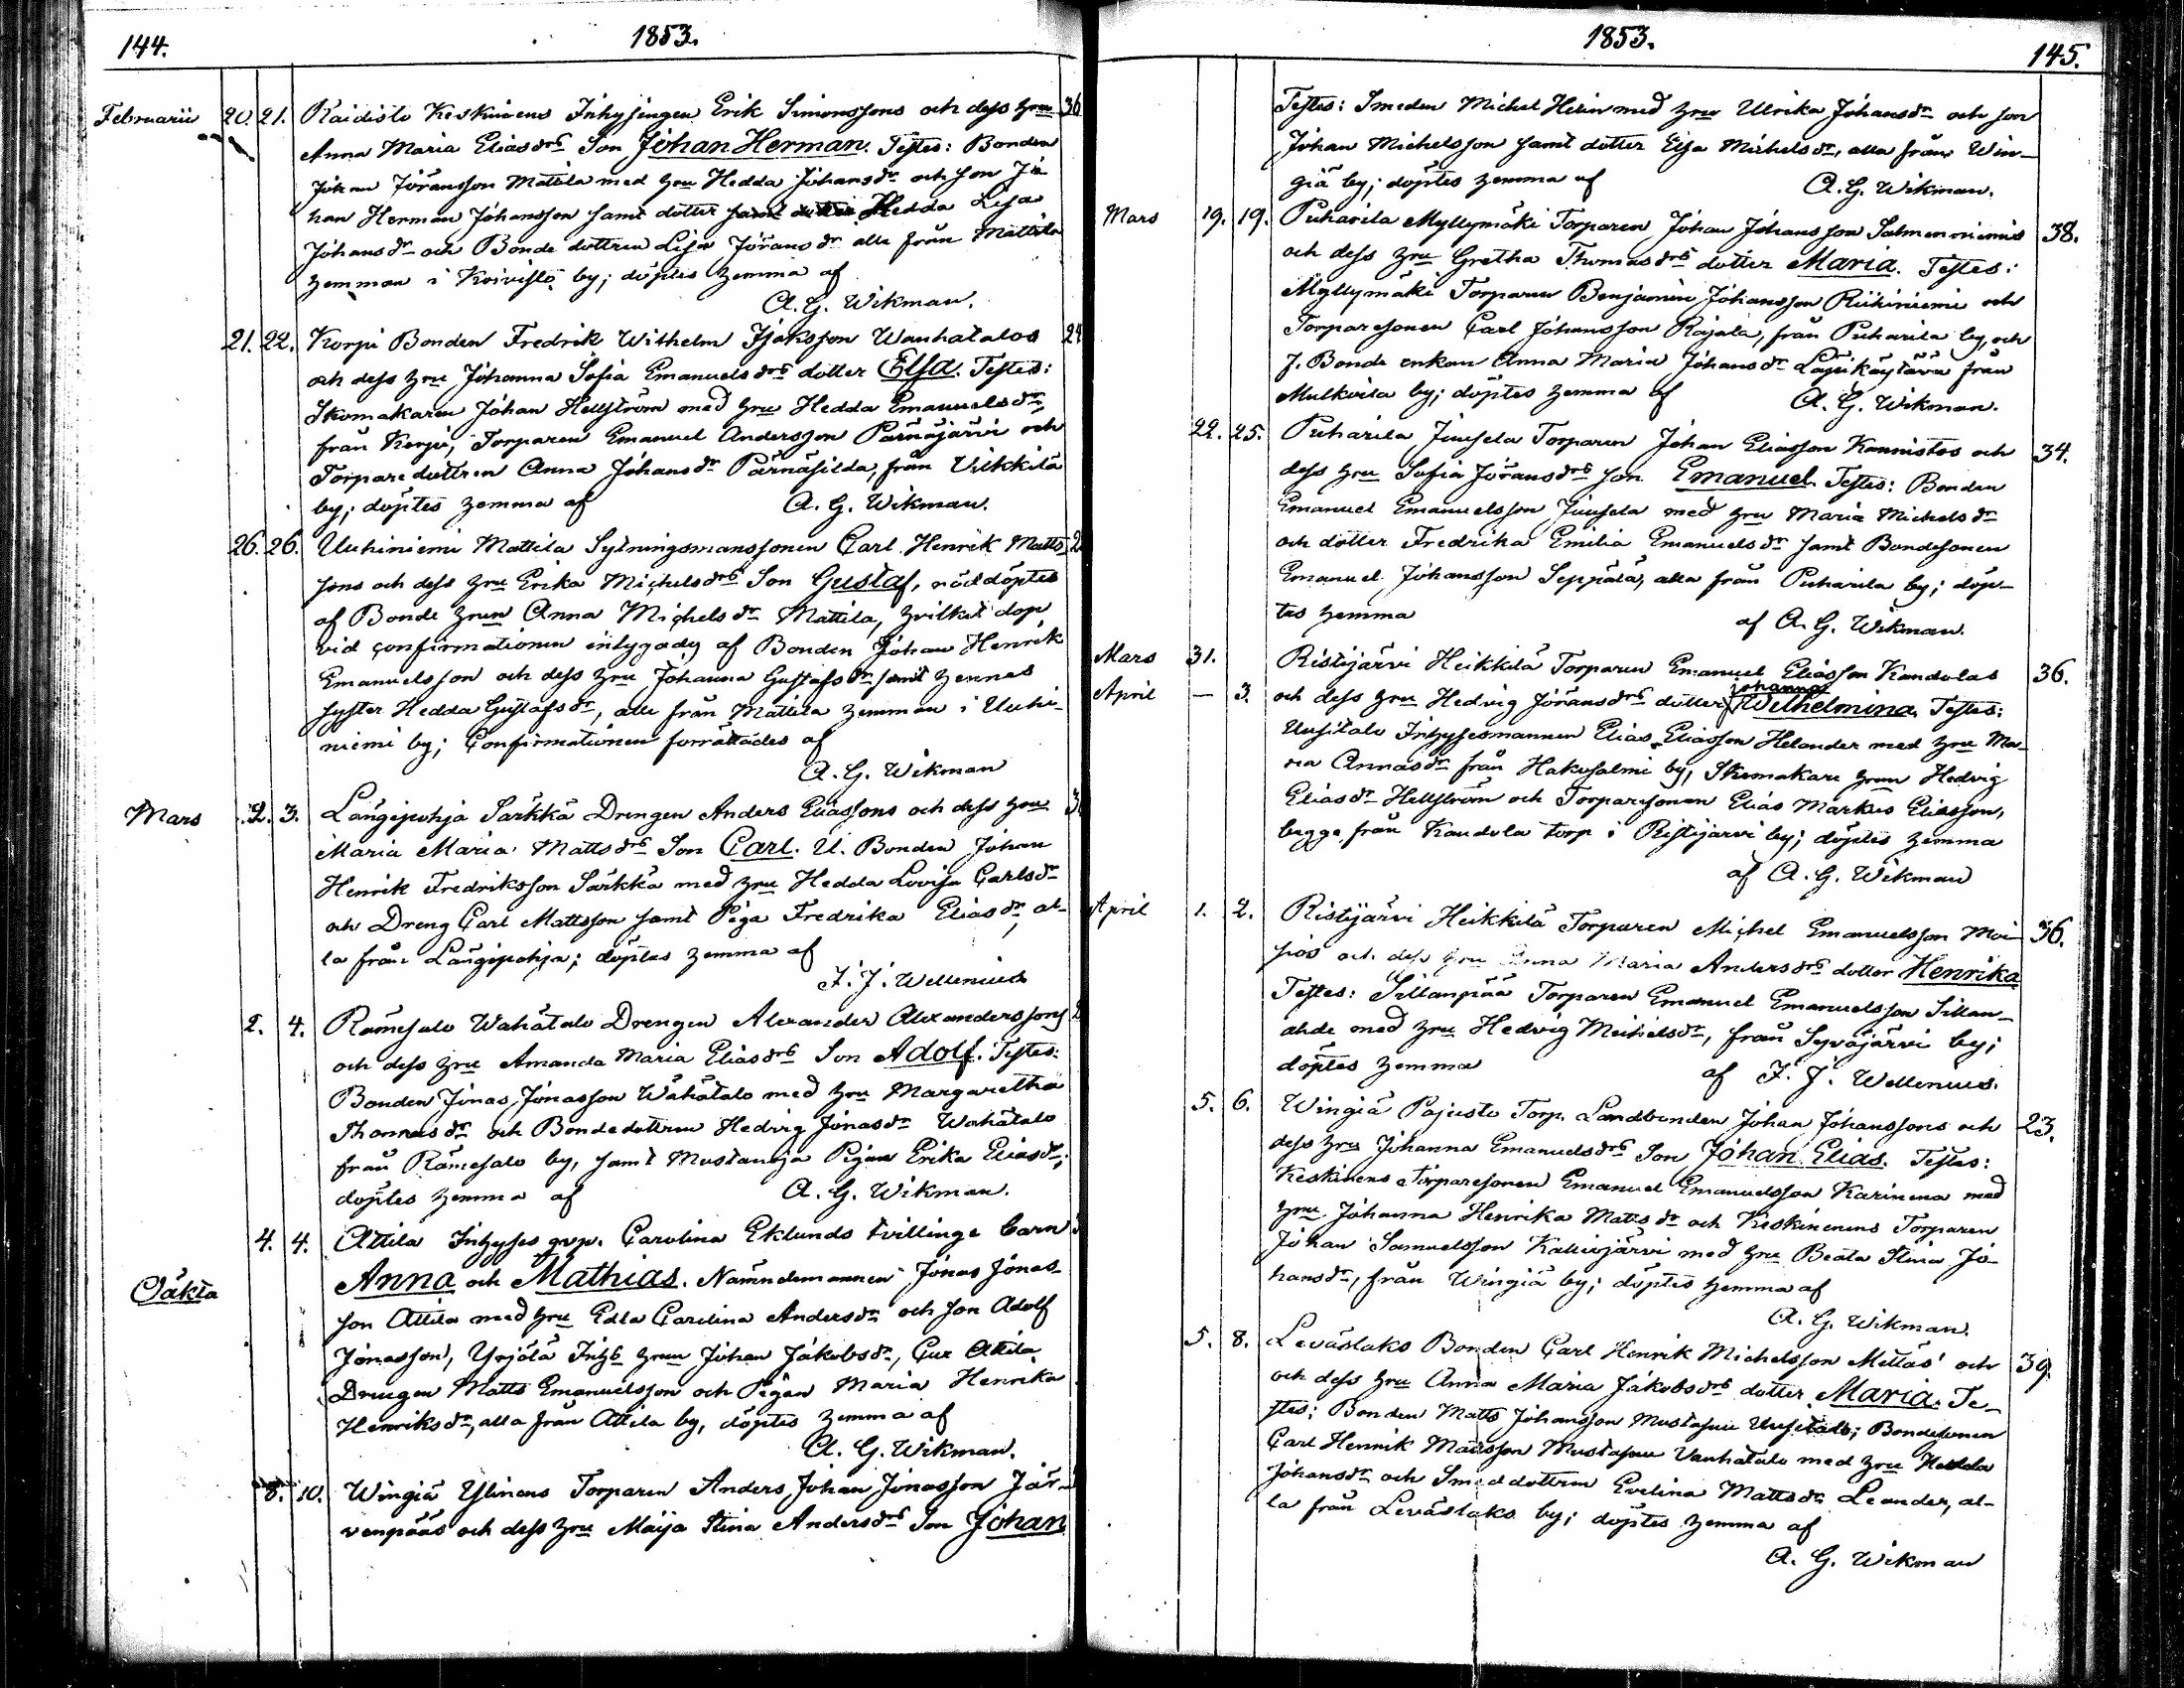 144.
1853.
Februarii 20. 21. Raidisto Keskinens Inhysingen Erik Simonssons och dess hru 36
Anna Maria Eliasdrs Son Johan Herman. Testes: Bonden
Johan Göransson Mattila med hru Hedda Johansdr och son Jo-
han Herman Johansson samt dotter Hedda Lisa
Johansdr och Bonde dottren Lisa Göransdr alla från Mattila
hemman i Koivisto by; döptes hemma af
A. G. Wikman.
21. 22. Korpi Bonden Fredrik Wilhelm Isaksson Wanhatalos 24
och dess hru Johanna Sofia Emanuelsdrs dotter Elsa. Testes:
Skomakaren Johan Hellström med hru Hedda Emanuelsdr,
från Korpi, Torparen Emanuel Andersson Pärnäjärvi och
Torpare dottren Anna Johansdr Pärnäsilda, från Vilkkilä
by; döptes hemma af A. G. Wikman.
26. 26. Uuhiniemi Mattila Sytningsmanssonen Carl Henrik Matts- 2
sons och dess hru Erika Michelsdrs Son Gustaf, nöddöptes
af Bonde hrun Anna Michelsdr Mattila, hvilket dop
vid confirmationen intygades af Bonden Johan Henrik
Emanuelsson och dess hru Johanna Gustafsdr samt hennes
syster Hedda Gustafsdr, alla från Mattila hemman i Uuhi-
niemi by; Confirmationen förrättades af
A. G. Wikman
Mars 2. 3. Längipohja Särkkä Drengen Anders Eliassons och dess hru 3
Maria Maria Mattsdrs Son Carl. U. Bonden Johan
Henrik Fredriksson Särkkä med hru Hedda Lovisa Carlsdr
och Dreng Carl Mattsson samt Piga Fredrika Eliasdr, al-
la från Längipohja; döptes hemma af
F. J. Wellenius
2. 4. Rämesalo Wahätalo Drengen Alexander Alexanderssons
och dess hru Amanda Maria Eliasdrs Son Adolf. Testes:
Bonden Jonas Jonasson Wähätalo med hru Margaretha
Thomasdr och Bondedottren Hedvig Jonasdr Wahätalo
från Rämesalo by, samt Mustanoja Pigan Erika Eliasdr;
döptes hemma af A. G. Wikman.
4. 4. Attila Inhyses qvp. Carolina Eklunds tvillinge barn
Oäkta
Anna och Mathias. Nämndemannen Jonas Jonas-
son Attila med hru Edla Carolina Andersdr och son Adolf
Jonasson, Yrjölä Inhs hrun Johan Jakobsdr, Attila
Drengen Matts Emanuelsson och Pigan Maria Henrika
Henriksdr, alla från Attila by, döptes hemma af
A. G. Wikman.
8. 10. Wingiä Ylinens Torparen Anders Johan Jonasson Jär-
venpääs och dess hru Maija Stina Andersdrs Son Johan
1853.
145.
Testes: Smeden Michel Helin med hru Ulrika Johansdr och son
Johan Michelsson samt dotter Elsa Michelsdr, alla från Win-
giä by; döptes hemma af A. G. Wikman.
Mars 19. 19. Puharila Myllymäki Torparen Johan Johansson Salmenniemis 38.
och dess hru Gretha Thomasdrs dotter Maria. Testes:
Myllymäki Torparen Benjamin Johansson Riikiniemi och
Torparesonen Carl Johansson Rajala, från Puharila by, och
f. Bonde enkan Anna Maria Johansdr Läsikäytävä från
Mulkoila by; döptes hemma af A. G. Wikman.
22. 25. Puharila Juusela Torparen Johan Eliasson Kannistos och 34.
dess hru Sofia Göransdrs son Emanuel. Testes: Bonden
Emanuel Emanuelsson Juusela med hru Maria Michelsdr
och dotter Fredrika Emilia Emanuelsdr samt Bondesonen
Emanuel Johansson Seppälä, alla från Puharila by; döp-
tes hemma af A. G. Wikman.
Mars 31. Ristijärvi Heikkilä Torparen Emanuel Eliasson Kandolas 36.
April — 3. och dess hru Hedvig Göransdrs dotter Johanna Wilhelmina. Testes:
Uusitalo Inhysesmannen Elias Eliasson Helander med hru Ma-
ria Annasdr från Hakosalmi by, Skomakare hrun Hedvig
Eliasdr Hellström och Torparesonen Elias Markus Eliasson,
begge från Kandola torp i Ristijärvi by; döptes hemma
af A. G. Wikman
April 1. 2. Ristijärvi Heikkilä Torparen Michel Emanuelsson Moi- 36.
sios och dess hru Anna Maria Andersdrs dotter Henrika
Testes: Sillanpää Torparen Emanuel Emanuelsson Sillan-
ahde med hru Hedvig Michelsdr, från Syväjärvi by;
döptes hemma af F. J. Wellenius.
5. 6. Wingiä Pajusto Torp. Landbonden Johan Johanssons och 23.
dess hru Johanna Emanuelsdrs Son Johan Elias. Testes:
Keskinens Torparesonen Emanuel Emanuelsson Karinena med
hru Johanna Henrika Mattsdr och Keskinenens Torparen
Johan Samuelsson Kaliojärvi med hru Beata Stina Jo-
hansdr, från Wingiä by; döptes hemma af
A. G. Wikman.
5. 8. Leväslaks Bonden Carl Henrik Michelsson Mellas och 39.
och dess hru Anna Maria Jakobsdrs dotter Maria. Te-
stes: Bonden Matts Johansson Mustasuu Uusitalo; Bondesonen
Carl Henrik Mattsson Mustasuu Vanhatalo med hru Hedda
Johansdr och Smeddottren Evelina Mattsdr Leander, al-
la från Leväslaks by; döptes hemma af
A. G. Wikman